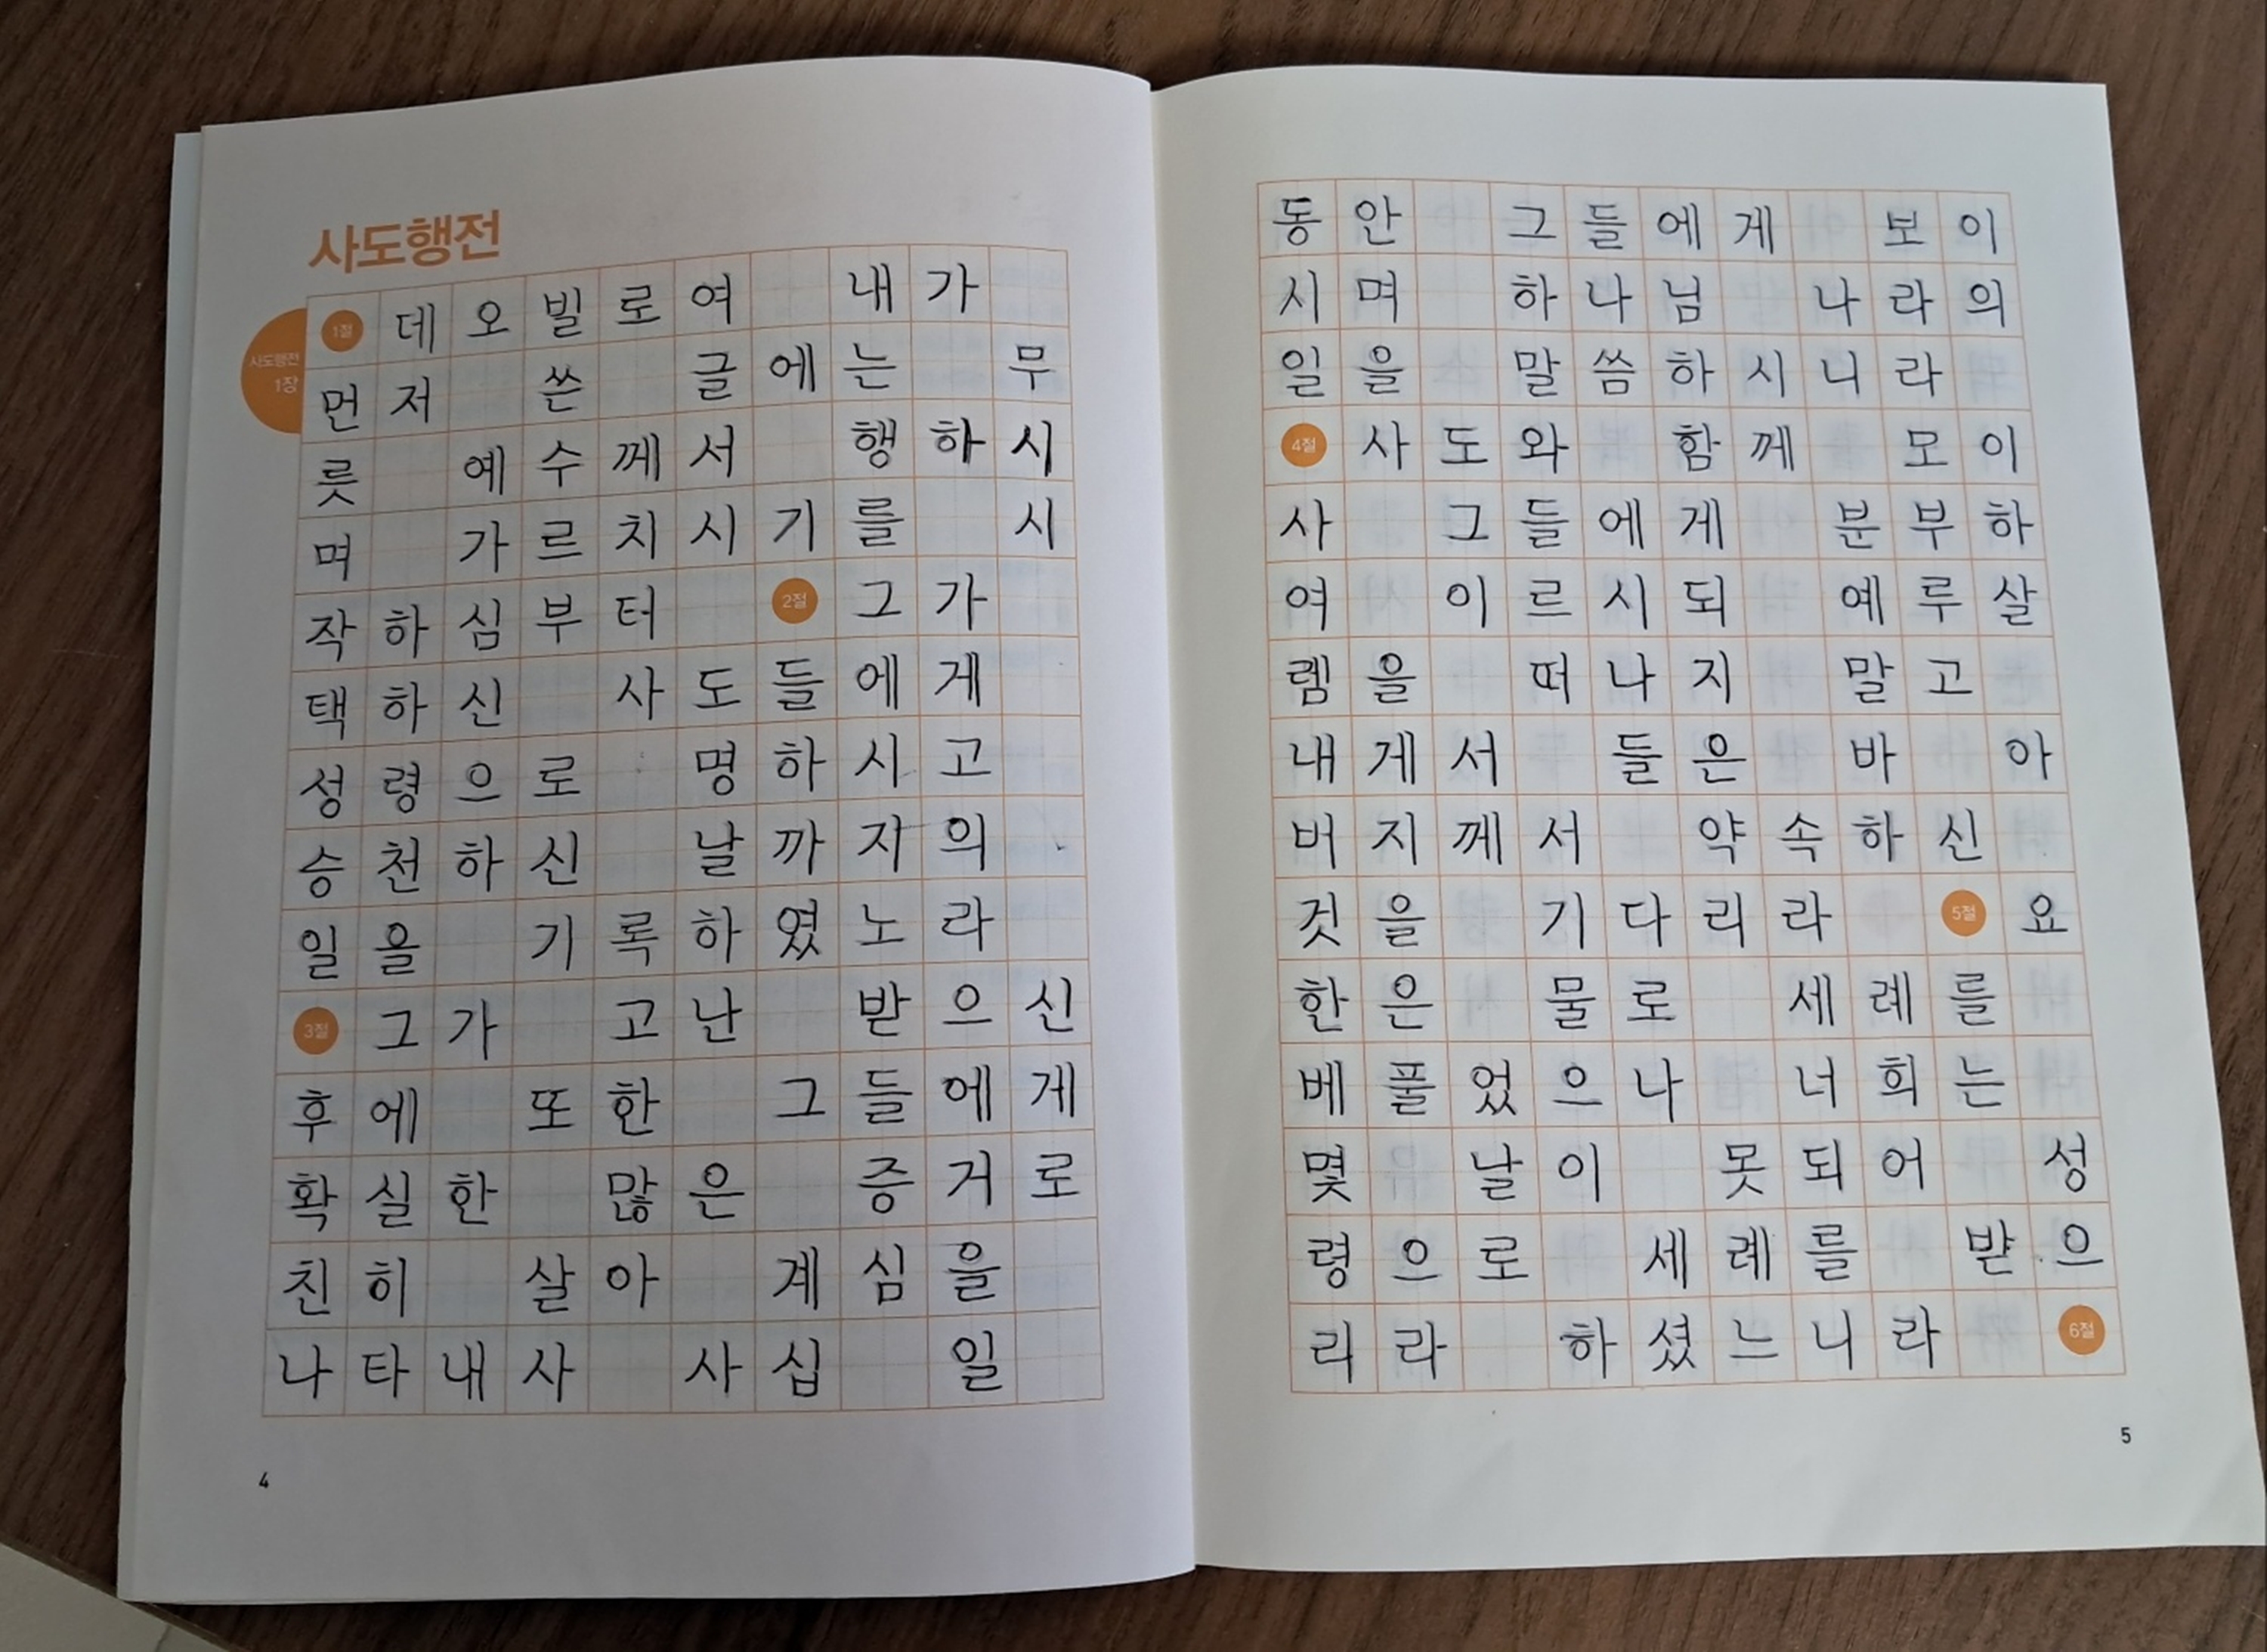 사도행전
사도행전
1장
1절 데오빌로여 내가
먼저 쓴 글에는 무
릇 예수께서 행하시
며 가르치시기를 시
작하심부터 2절 그가
택하신 사도들에게
성령으로 명하시고
승천하신 날까지의
일을 기록하였노라
3절 그가 고난 받으신
후에 또한 그들에게
확실한 많은 증거로
친히 살아 계심을
나타내사 사십 일
4
동안 그들에게 보이
시며 하나님 나라의
일을 말씀하시니라
4절 사도와 함께 모이
사 그들에게 분부하
여 이르시되 예루살
렘을 떠나지 말고
내게서 들은 바 아
버지께서 약속하신
것을 기다리라 5절 요
한은 물로 세례를
베풀었으나 너희는
몇 날이 못되어 성
령으로 세례를 받으
리라 하셨느니라 6절
5